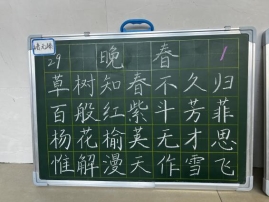 29 晚春 1
草树知春不久归
百般红紫斗芳菲
杨花榆荚无才思
惟解漫天作雪飞